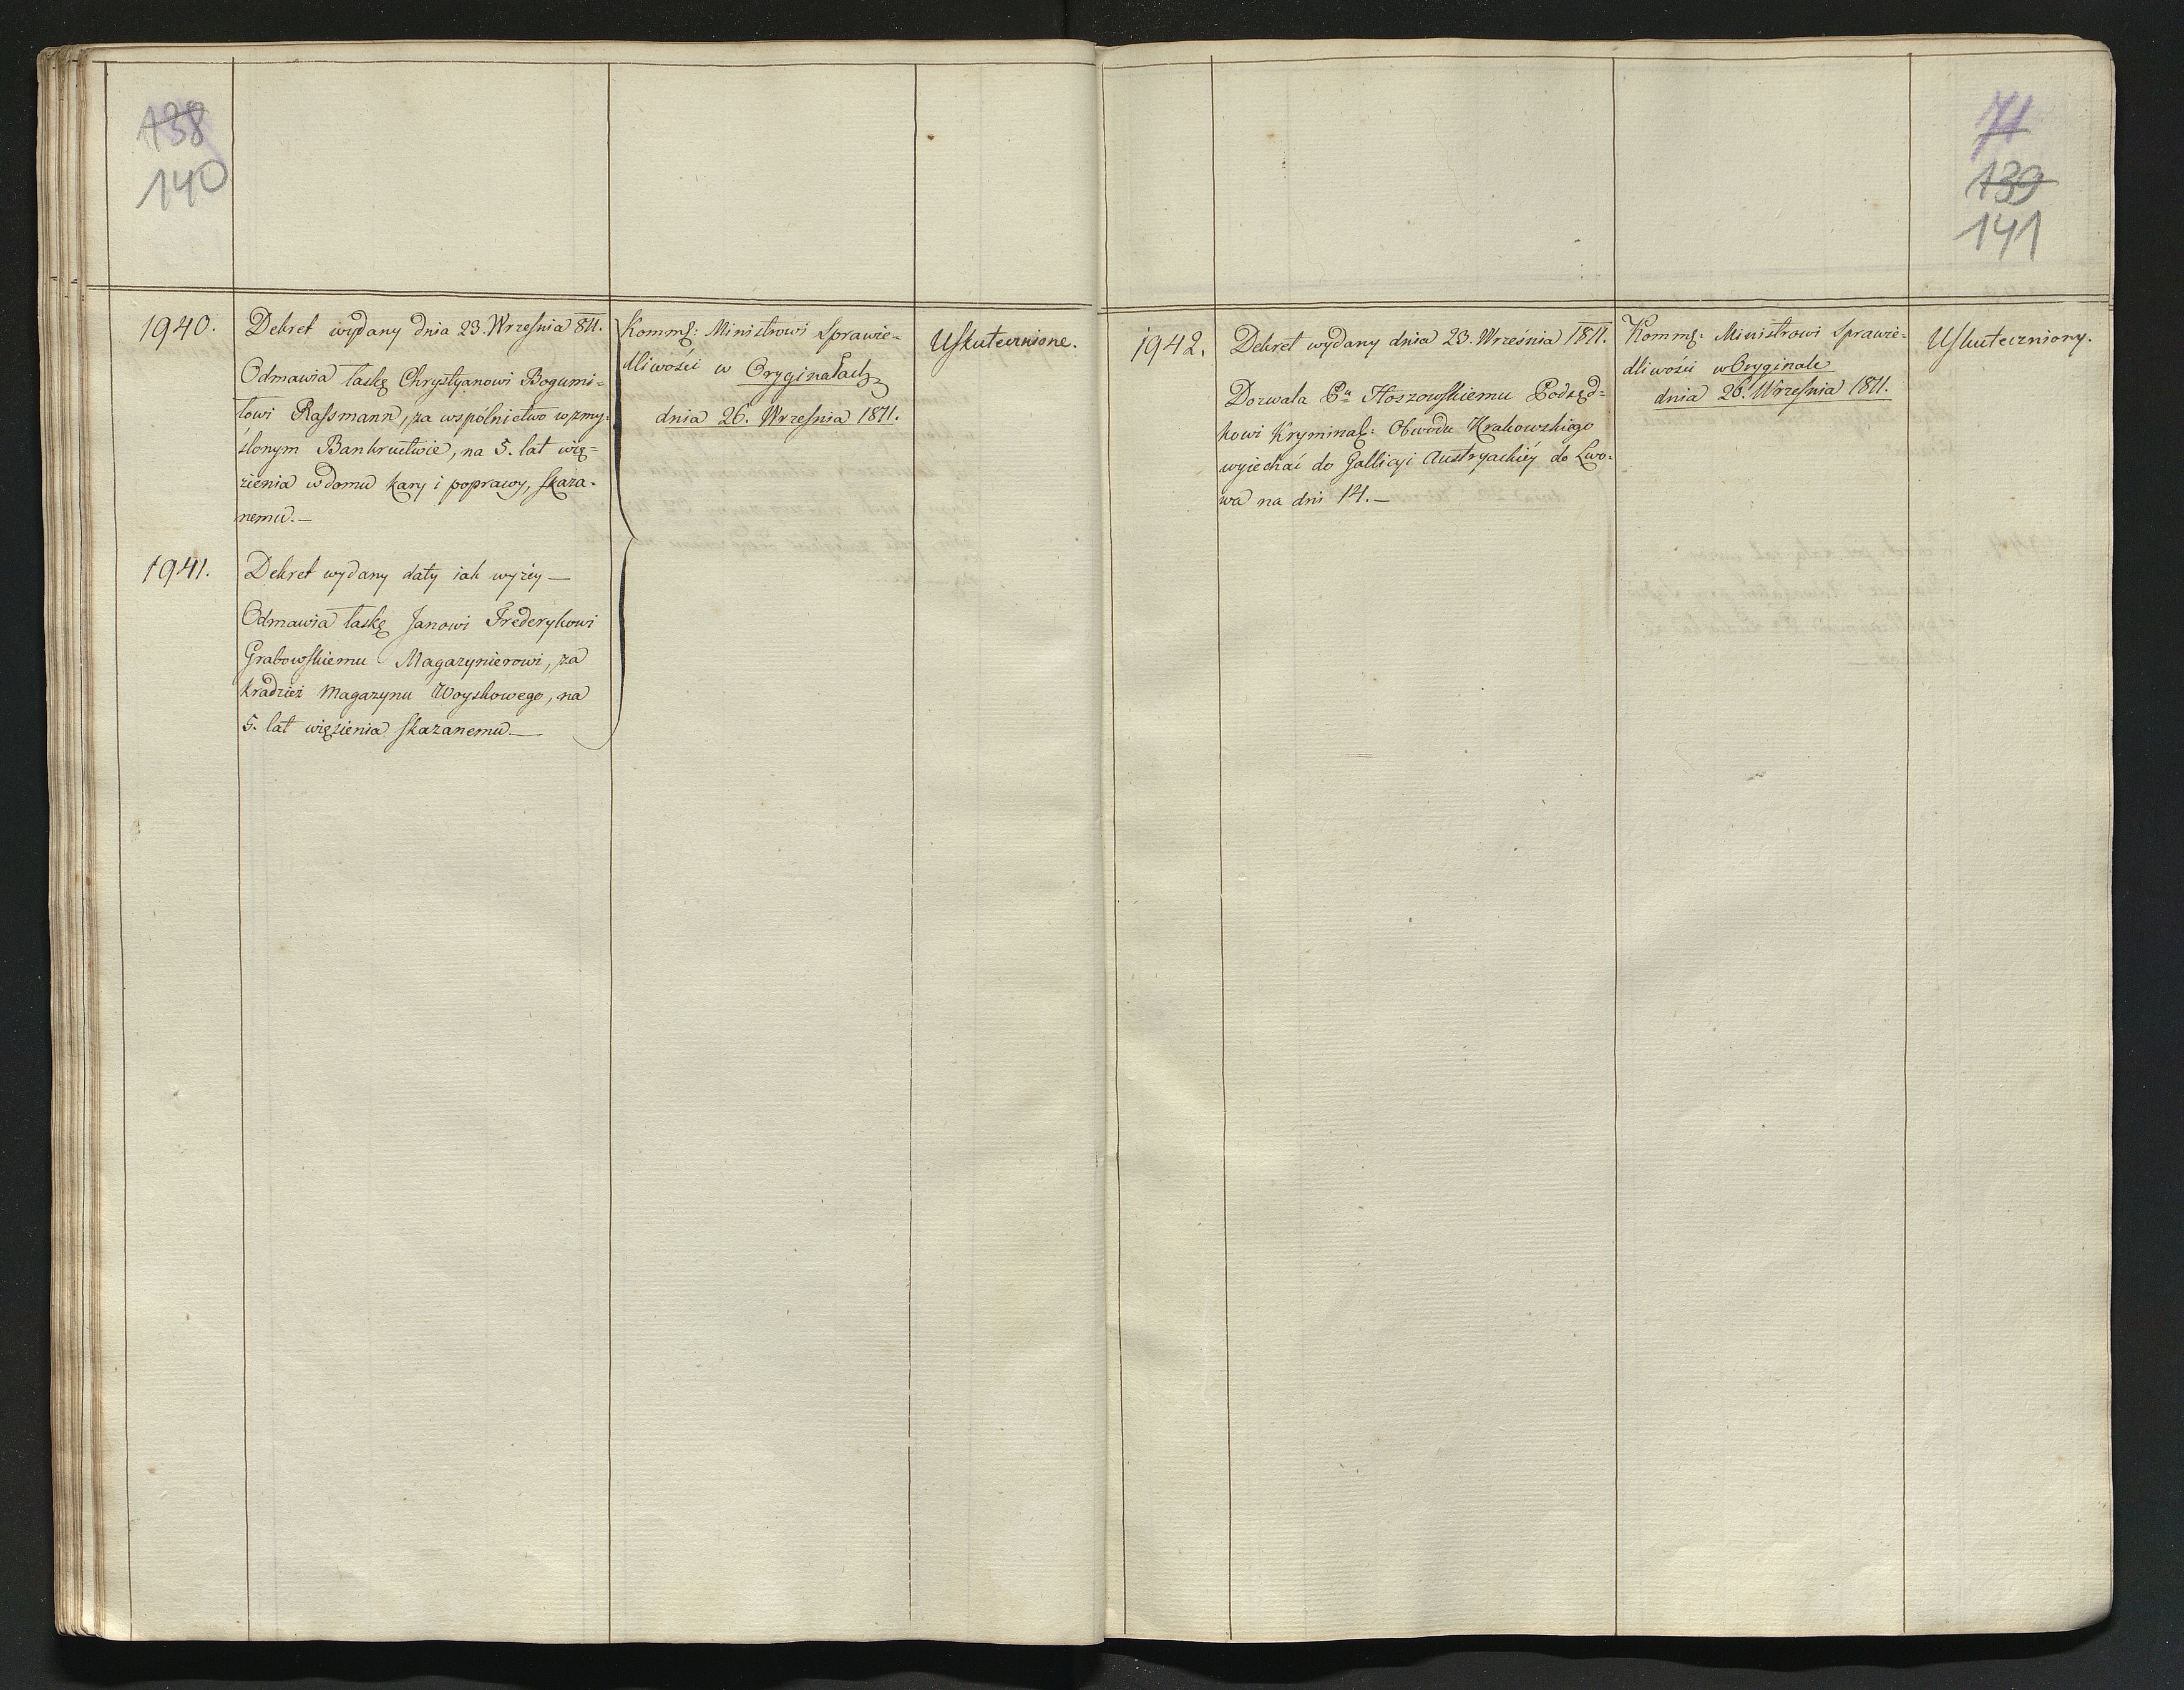 138
140
1940.
Dekret wydany dnia 23. Wrześnja 811.
Odmawia łaskę Chrystyanowi Bogumi-
łowi Rassmann, za wspólnictwo w zmy-
ślonym Bankructwie, na 5. lat wię-
zienia w domu kary i poprawy, skaza-
nemu.—
1941.
Dekret wydany daty iak wyżey—
Odmawia łaskę Janowi Frederykowi
Grabowskiemu Magazynierowi, za
kradzież Magazynu Woyskowego, na
5. lat więzienia skazanemu—
Kommŧ: Ministrowi Sprawie-
dliwości w Oryginałach
dnia 26. Wrześnja 1811.
Uskutecznione.
71
139
141
1942.
Dekret wydany dnia 23. Września 1811.
Dozwala Pu Hoszowskiemu Podsęd-
kowi Kryminal: Obwodu Krakowskiego
wyiechać do Gallicyi Austryackiéy do Lwo-
wa na dni 14.—
Kommŧ: Ministrowi Sprawie-
dliwości w Oryginale
dnia 26. Wrześnja 1811.
Uskuteczniony.